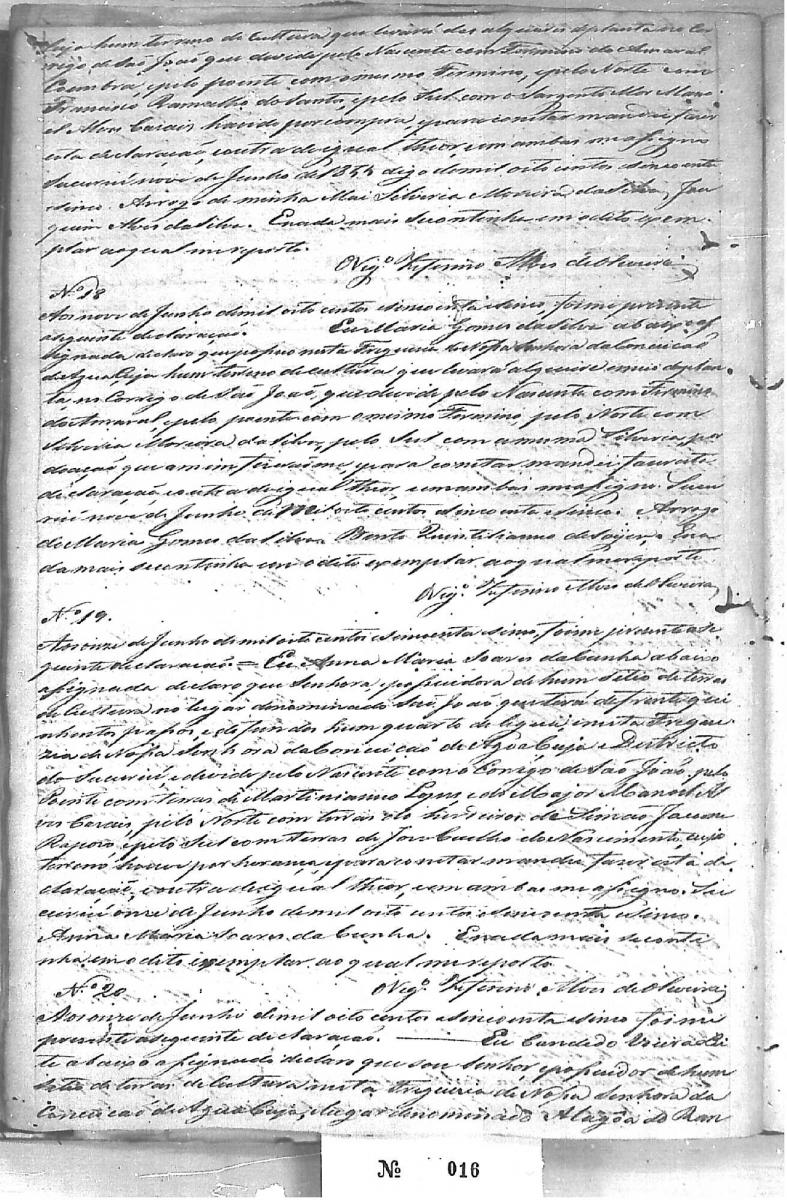 Suja hum terreno de Cultura que levará des alqueires de planta no Cor
rigo de São João que devide pelo Nascente com Fermino do Amaral
Coimbra, e pelo poente com o mesmo Fermino, e pelo Norte com
Francisco Ramalho do Santo, e pelo Sul com o Sargento Mor Mano
el Alves Cacais havido por compra, e para constar mandei fazer
esta declaracaõ, e outra de igual theor, em ambas me asigno
Sucuriú nove de Junho de 1855 digo de mil oito centos sincoenta
e sinco. Arrogo de minha Mai Silveria Moreira da Silva, Joa
quim Alves da Silva. E nada mais se continha em o dito exem
plar ao qual me reporto.
O Vigº. Zeferino Alves de Oliveira
Nº 18
Aos nove de Junho de mil oito centos e sincoenta e sinco, foi me prezente
a seguinte declaracaõ. Eu Maria Gomes da Silva abaixo as
signada declaro que posuo nesta Freguesia de Nossa Senhora da Conceicaõ
de Agua Suja hum terreno de cultura que levara alqueire e meio de plan
ta no Corrigo de São João, que devide pelo Nascente com Fermino
do Amaral, e pelo poente com o mesmo Fermino, pelo Norte com
Silveria Moreira da Silva, pelo Sul com a mesma Silveria, por
doaçaõ que a mim fez, e para constar mandei fazer esta
declaracaõ e outra de igual theor, e em ambas me asigno. Sucu
riú nove de Junho de mil oito centos e sincoenta e sinco. Arrogo
de Maria Gomes da Silva. Bento Quintilianno de E na
da mais se continha em o dito exemplar ao qual me reporto
O Vigº. Zeferino Alves de Oliveira
Nº 19.
Aos onze de Junho de mil oito centos e sincoenta e sinco, foi me prezente a se
guinte declaracaõ. = Eu Anna Maria Soares da Cunha abaixo
assignada declaro que Senhora, e possuidora de hum sitio de terras
de Cultura no lugar denominado São João que terá de frente qui
nhentos passos, e de fundos hum quarto de legua, e nesta Fregue
zia de Nossa Senhora da Conceicaõ de Agoa Cuja e Destricto
do Sucuriú e devide pelo Nascente com o Corrigo de São João, pelo
Poente com terras de Martinianno e do Major Manoel Al
ves Cacais, pelo Norte com terras dos herdeiros de Simião
Rapozo, e pelo Sul com terras de Joze Coelho do Nascimento, cujo
terreno houve por herança, e para constar mandei fazer esta de
claracaõ, e outra de igual theor, e em ambas me assigno. Su
curiú onze de Junho de mil oito centos e sincoenta e sinco.
Anna Maria Soares da Cunha. E nada mais se conti
nha em o dito exemplar ao qual me reporto
Nº 20 O Vigº. Zeferino Alves de Oliveira
Aos onze de Junho de mil oito centos e sincoenta e sinco foi me
prezente a seguinte declaracaõ. — Eu Candido Vieira Lei
te abaixo assignado declaro que sou Senhor e possuidor de hum
sitio de terras de Cultura nesta Freguezia de Nossa Senhora da
Conceicaõ de Agua Cuja, e lugar denominado Alagôa do Ran
Nº 016